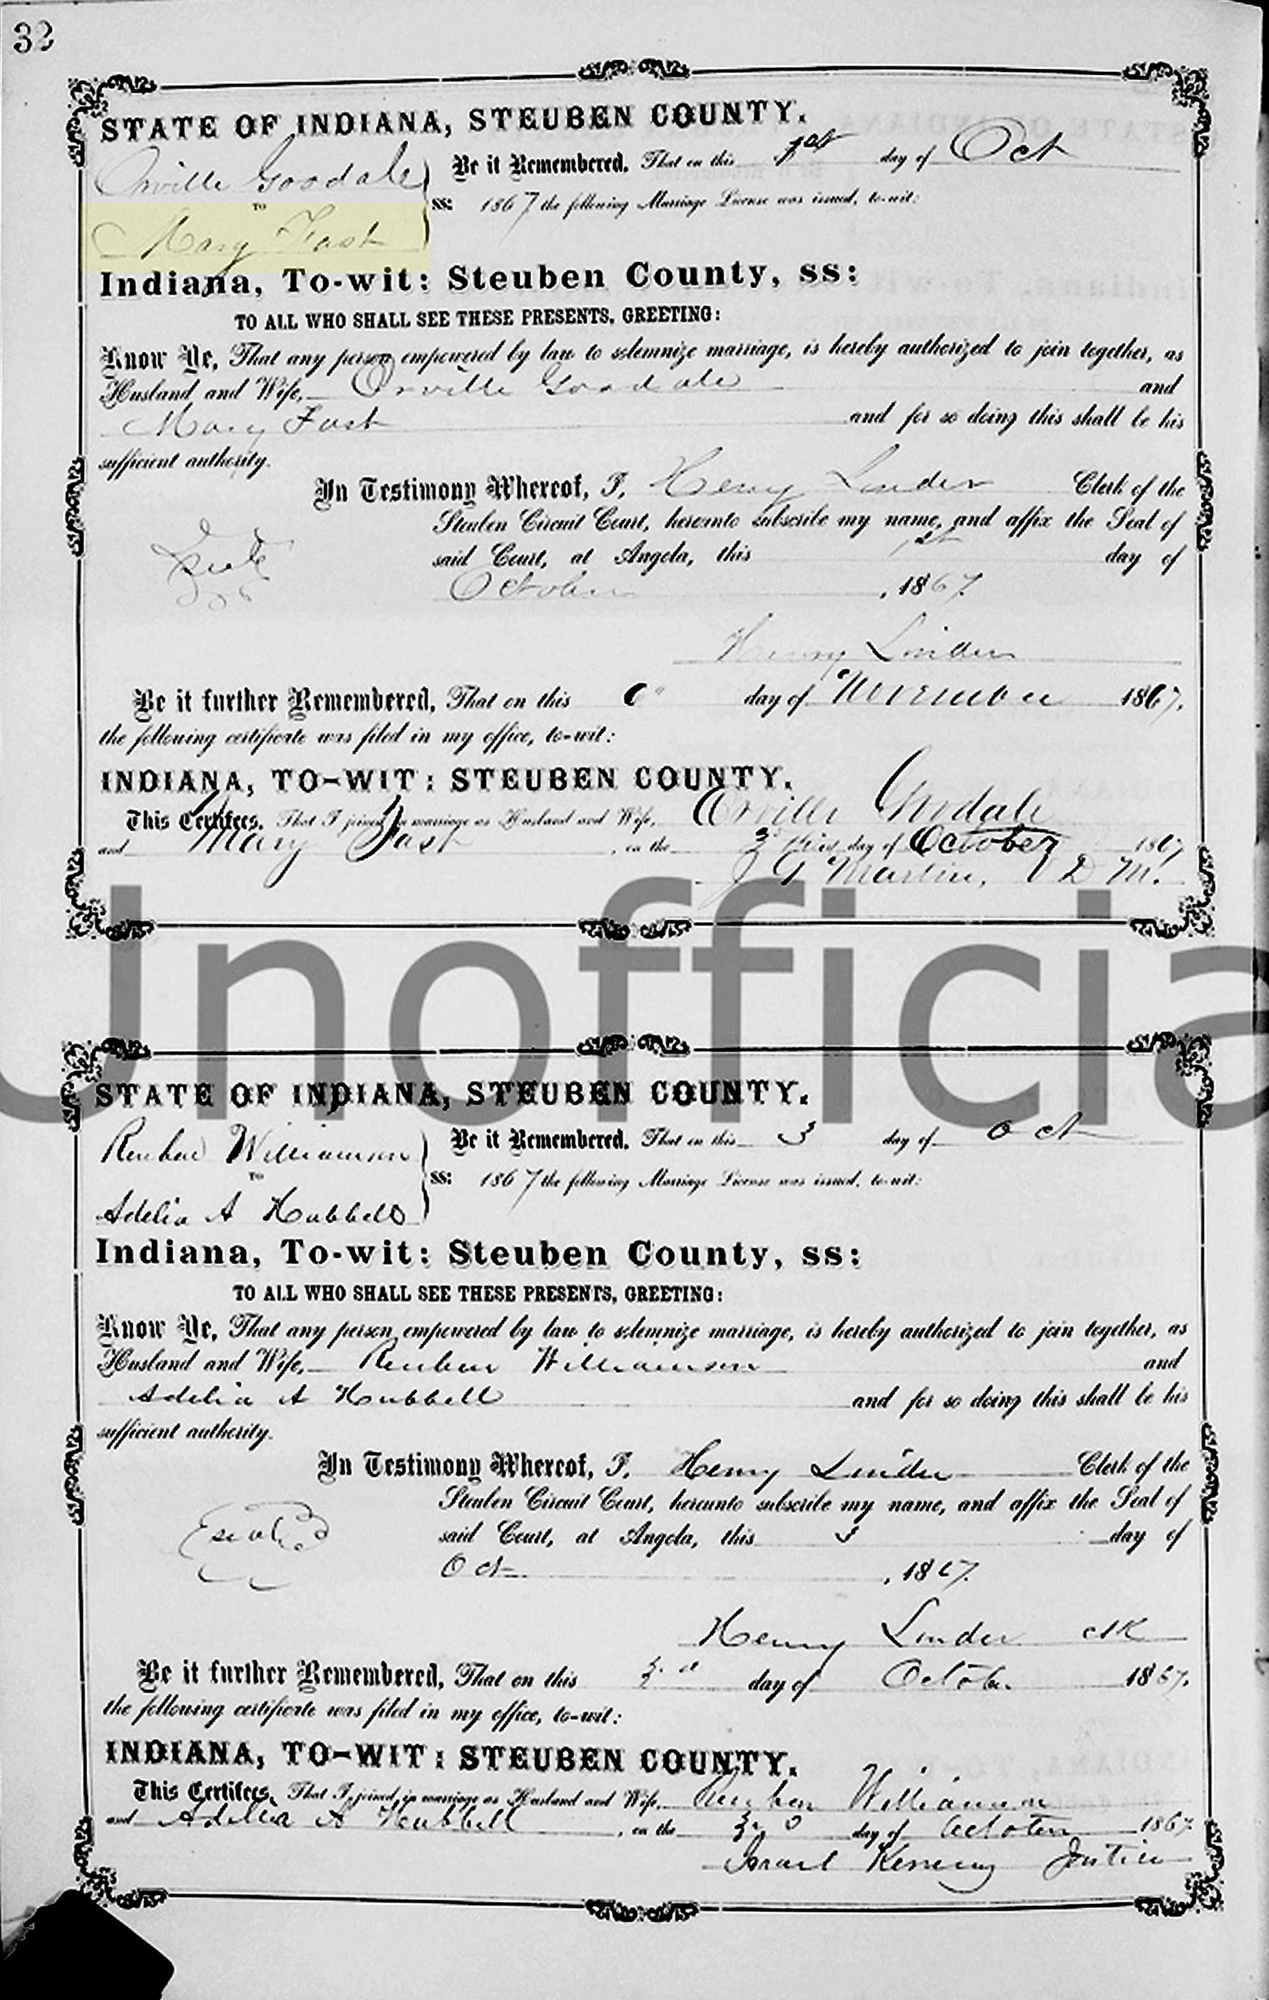 32
STATE OF INDIANA, STEUBEN COUNTY.
Orville Goodale
TO
Mary Fast
Be it Remembered, That on this 1st day of Oct
ss: 1867 the following Marriage License was issued, to-wit:
Indiana, To-wit: Steuben County, ss:
TO ALL WHO SHALL SEE THESE PRESENTS, GREETING:
Know Ye, That any person empowered by law to solemnize marriage, is hereby authorized to join together, as
Husband and Wife, Orville Goodale and
Mary Fast and for so doing this shall be his
sufficient authority.
In Testimony Whereof, I, Henry Linder Clerk of the
Steuben Circuit Court, hereunto subscribe my name, and affix the Seal of
said Court, at Angola, this 1st day of
October, 1867.
Henry Linder
Be it further Remembered, That on this 6" day of November 1867.
the following certificate was filed in my office, to-wit:
INDIANA, TO-WIT: STEUBEN COUNTY.
This Certifees, That I joined in marriage as Husband and Wife, Orville Goodale
and Mary Fast, on the 3 day of October 1867
J G Martin, V D M.
Unofficia
STATE OF INDIANA, STEUBEN COUNTY.
Reuben Williamson
TO
Adelia A Hubbell
Be it Remembered, That on this 3 day of Oct
ss: 1867 the following Marriage License was issued, to-wit:
Indiana, To-wit: Steuben County, ss:
TO ALL WHO SHALL SEE THESE PRESENTS, GREETING:
Know Ye, That any person empowered by law to solemnize marriage, is hereby authorized to join together, as
Husband and Wife, Reuben Williamson and
Adelia A Hubbell and for so doing this shall be his
sufficient authority.
In Testimony Whereof, I, Henry Linder Clerk of the
Steuben Circuit Court, hereunto subscribe my name, and affix the Seal of
seal
said Court, at Angola, this 3 day of
Oct, 1867.
Henry Linder clk
Be it further Remembered, That on this 3rd day of October 1867.
the following certificate was filed in my office, to-wit:
INDIANA, TO-WIT: STEUBEN COUNTY.
This Certifees, That I joined in marriage as Husband and Wife, Reuben Williamson
and Adelia A Hubbell, on the 3rd day of October 1867
Israel Justice